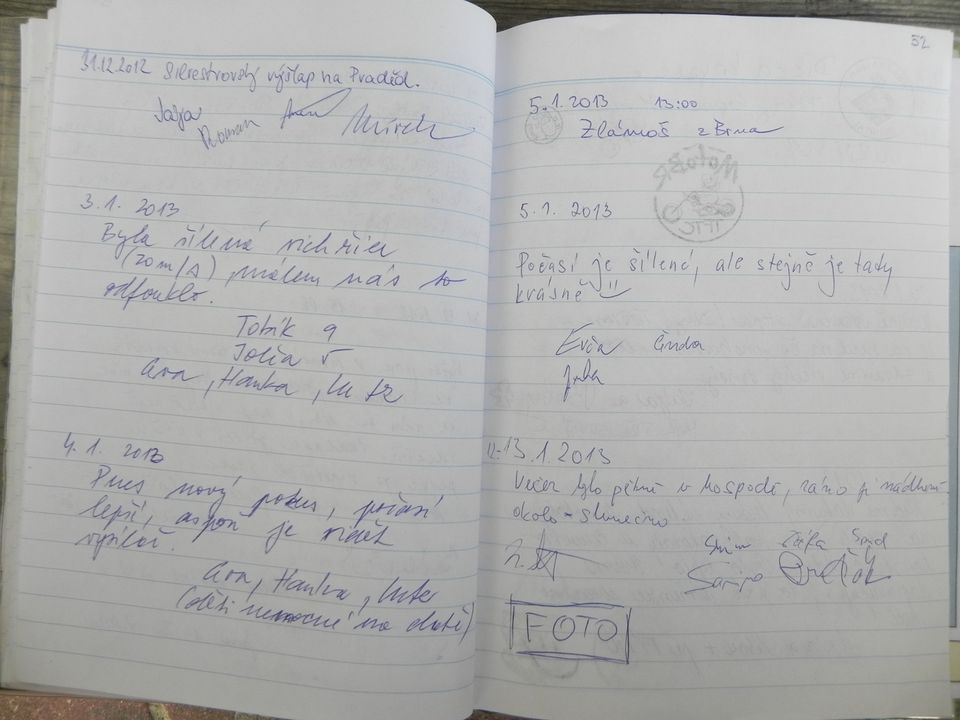 31.12.2012 Silvestrovský výšlap na Praděd.
Roman
Mirek
3.1. 2013
Byla šílená vichřice
(20 m/s), málem nás to
odfouklo.
Tobík 9
5
Hanka
4.1. 2013
Dnes nový pokus, počasí
lepší, aspoň je vidět
vysílač.
Hanka
(děti nemocné na chatě)
52
5.1.2013 13:00
z Brna
MotoBR
5.1. 2013
Počasí je šílené, ale stejně je tady
krásně
Evča
12-13.1.2013
Večer bylo pěkně v hospodě, ráno je nádherně
okolo - slunečno.
FOTO